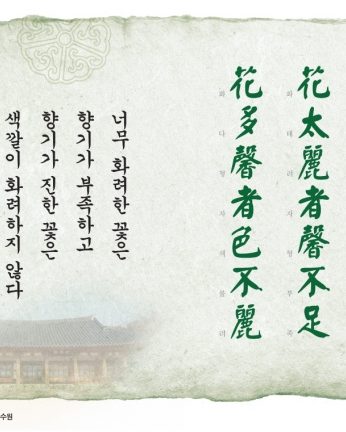 花太麗者馨不足
화태려자형부족
花多馨者色不麗
화다형자색불려
너무 화려한 꽃은
향기가 부족하고
향기가 진한 꽃은
색깔이 화려하지 않다
수원